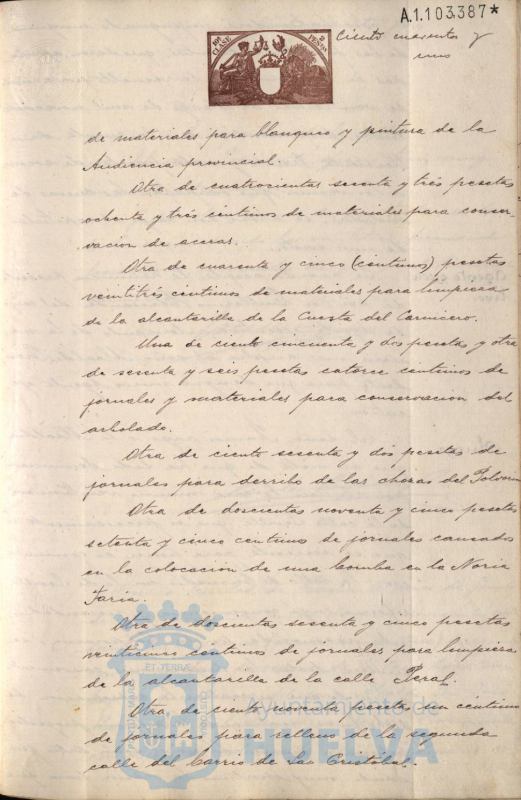 A.1.103387*
10ª CLASE
2 PESETAS
Ciento cuarenta y
uno
de materiales para blanqueo y pintura de la
Audiencia provincial.
Otra de cuatrocientas sesenta y tres pesetas
ochenta y tres céntimos de materiales para conser-
vación de aceras.
Otra de cuarenta y cinco (céntimos) pesetas
veintitrés céntimos de materiales para limpieza
de la alcantarilla de la Cuesta del Carnicero.
Una de ciento cincuenta y dos pesetas y otra
de sesenta y seis pesetas catorce céntimos de
jornales y materiales para conservación del
arbolado.
Otra de ciento sesenta y dos pesetas de
jornales para derribo de las chozas del Polvorín
Otra de doscientas noventa y cinco pesetas
setenta y cinco céntimos de jornales causados
en la colocación de una bomba en la Noria
Faria.
Otra de doscientas sesenta y cinco pesetas
veinticinco céntimos de jornales para limpieza
de la alcantarilla de la calle Peral.
Otra de ciento noventa pesetas un céntimo
de jornales para relleno de la segunda
calle del barrio de San Cristóbal.
ET TERRAE
Ayuntamiento de
HUELVA